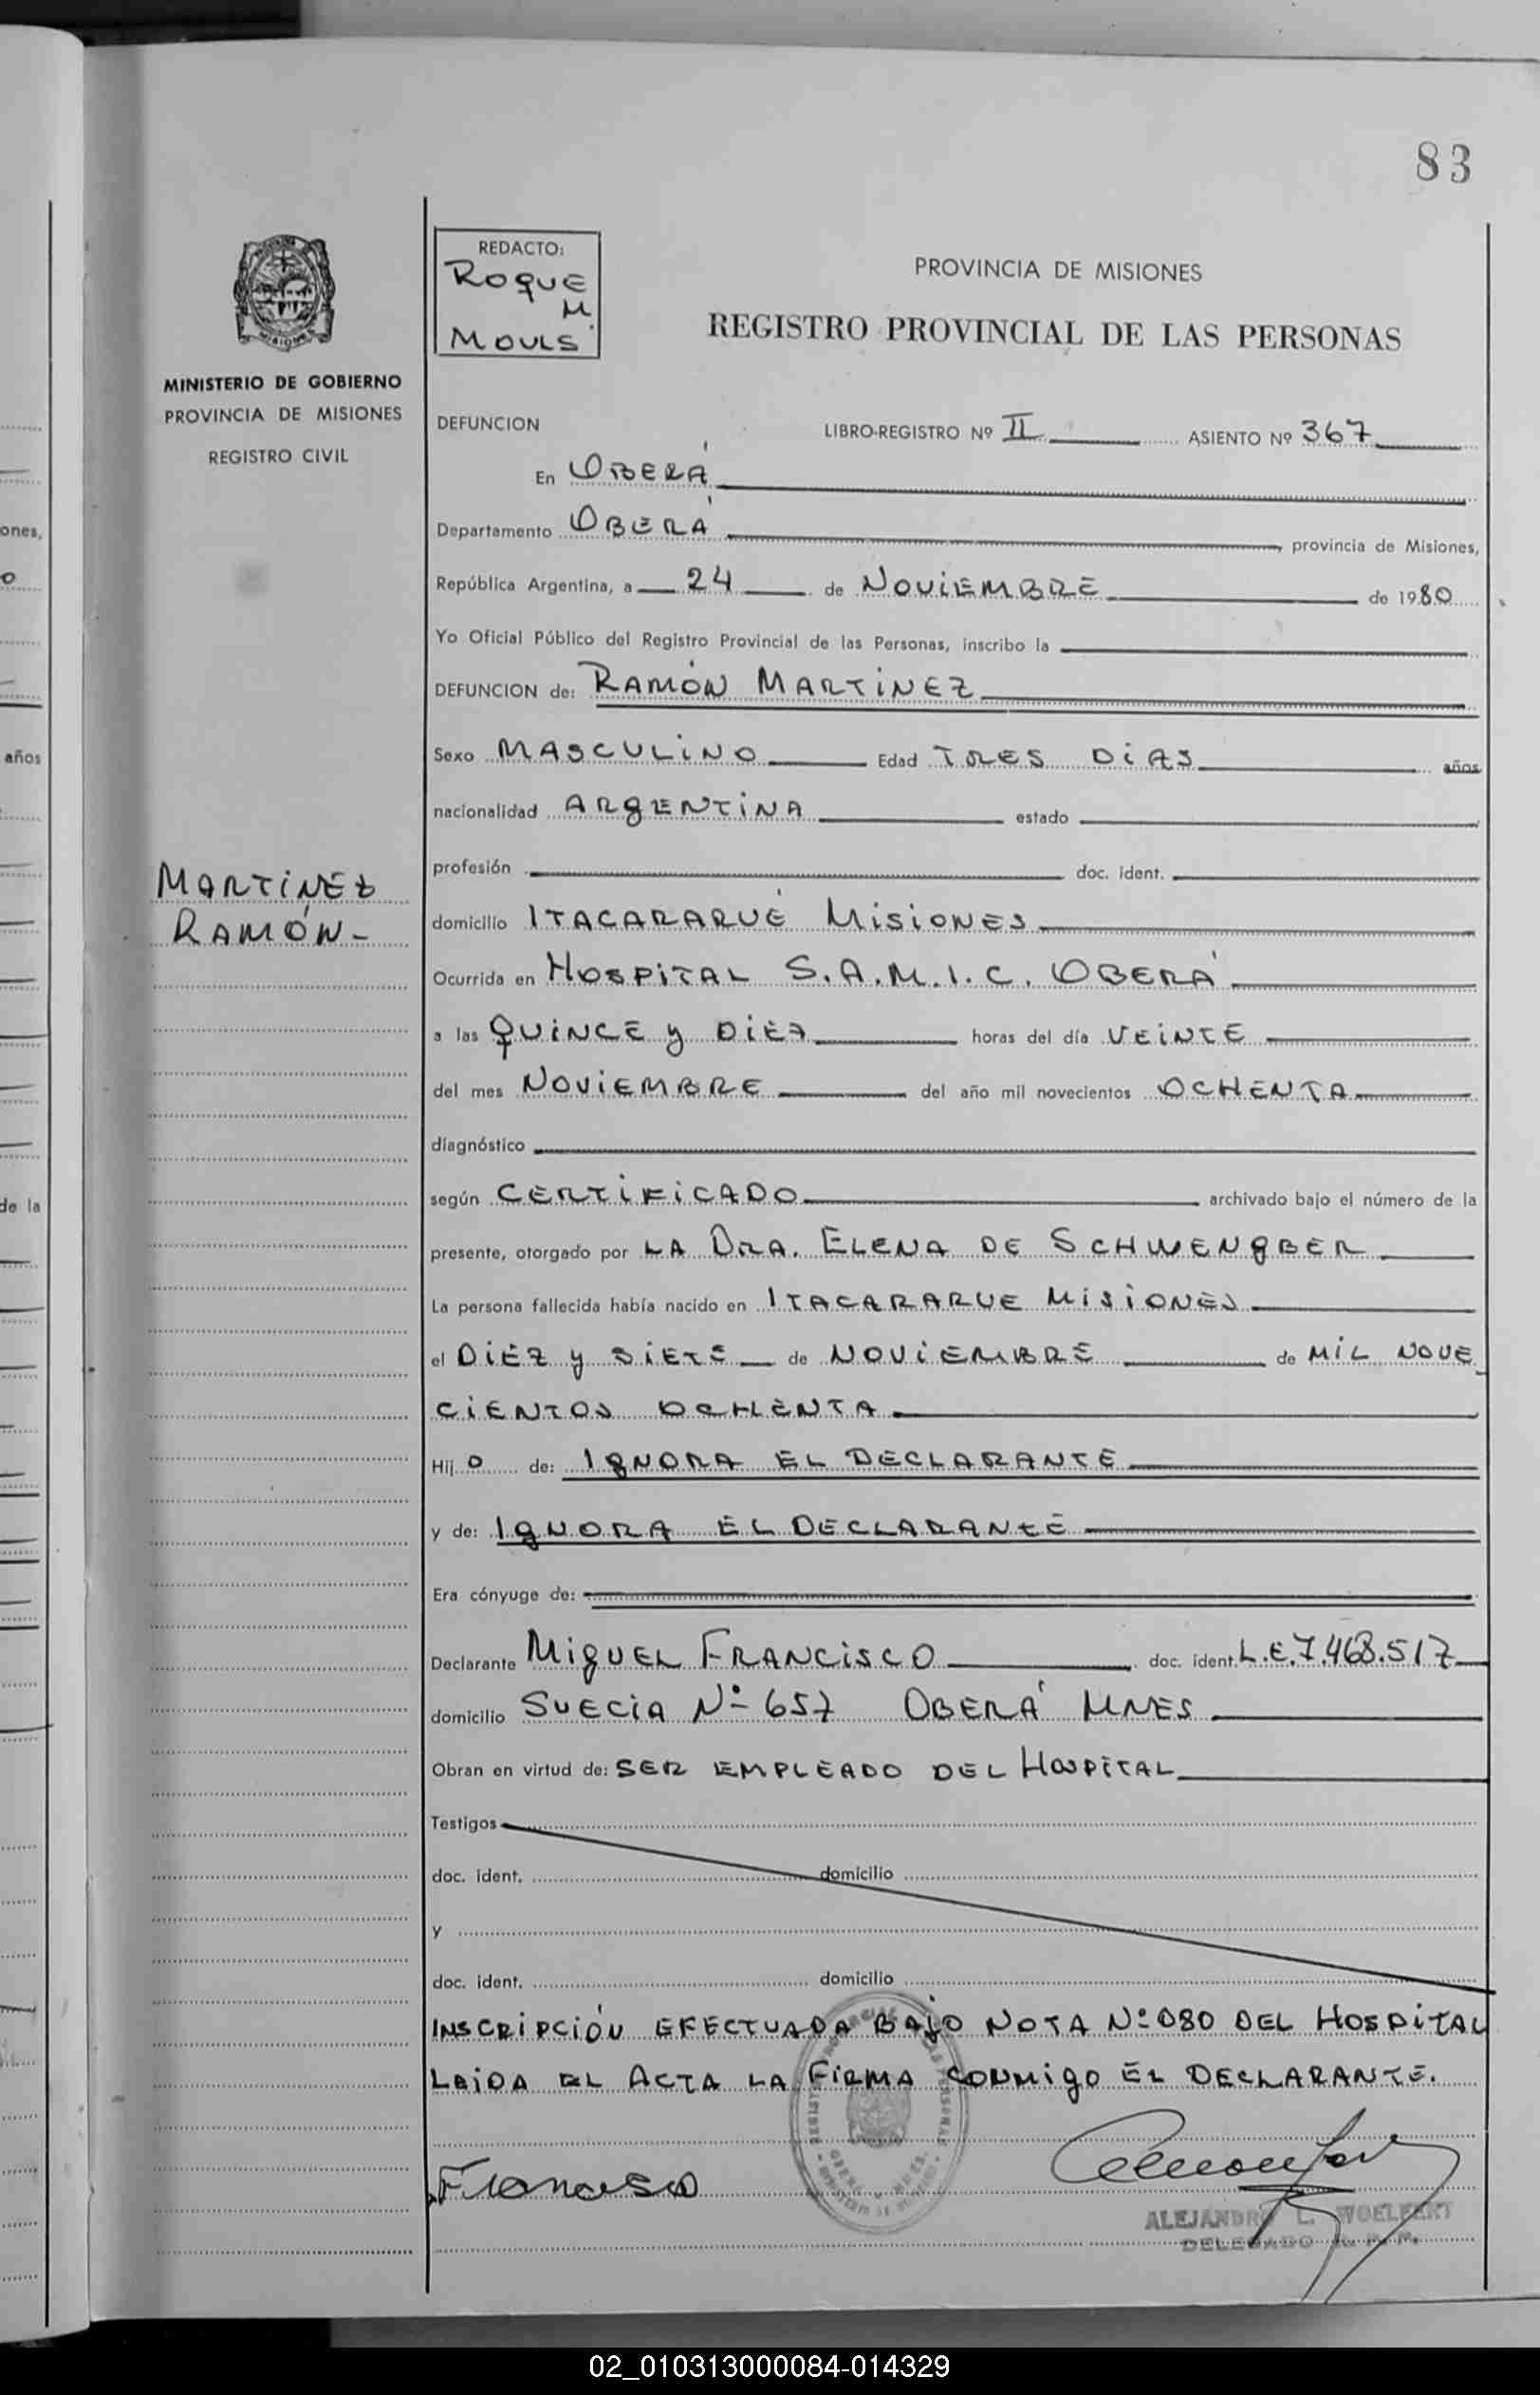 83
REDACTO:
ROQUE
M.
MOULS
PROVINCIA DE MISIONES
REGISTRO PROVINCIAL DE LAS PERSONAS
MINISTERIO DE GOBIERNO
PROVINCIA DE MISIONES
REGISTRO CIVIL
DEFUNCION LIBRO-REGISTRO Nº II ASIENTO Nº 367
En OBERÁ
Departamento OBERÁ provincia de Misiones,
República Argentina, a 24 de NOVIEMBRE de 1980
Yo Oficial Público del Registro Provincial de las Personas, inscribo la
DEFUNCION de: RAMÓN MARTINEZ
Sexo MASCULINO Edad TRES DIAS años
nacionalidad ARGENTINA estado
profesión doc. ident.
MARTINEZ
RAMÓN-
domicilio ITACARARUÉ MISIONES
Ocurrida en HOSPITAL S.A.M.I.C. OBERÁ
a las QUINCE y DIEZ horas del día VEINTE
del mes NOVIEMBRE del año mil novecientos OCHENTA
diagnóstico
según CERTIFICADO archivado bajo el número de la
presente, otorgado por LA DRA. ELENA DE SCHWENGBER
La persona fallecida había nacido en ITACARARUE MISIONES
el DIEZ y SIETE de NOVIEMBRE de MIL NOVE
CIENTOS OCHENTA
Hij o de: IGNORA EL DECLARANTE
y de: IGNORA EL DECLARANTE
Era cónyuge de:
Declarante MIGUEL FRANCISCO doc. ident. L.E.7.468.517
domicilio SUECIA Nº 657 OBERÁ MNES
Obran en virtud de: SER EMPLEADO DEL HOSPITAL
Testigos
doc. ident. domicilio
y
doc. ident. domicilio
INSCRIPCIÓN EFECTUADA BAJO NOTA Nº 080 DEL HOSPITAL
LEIDA EL ACTA LA FIRMA CONMIGO EL DECLARANTE.
Francisco
ALEJANDRO L. WOELFERT
DELEGADO R. P. P.
ones,
o
años
de la
02_010313000084-014329